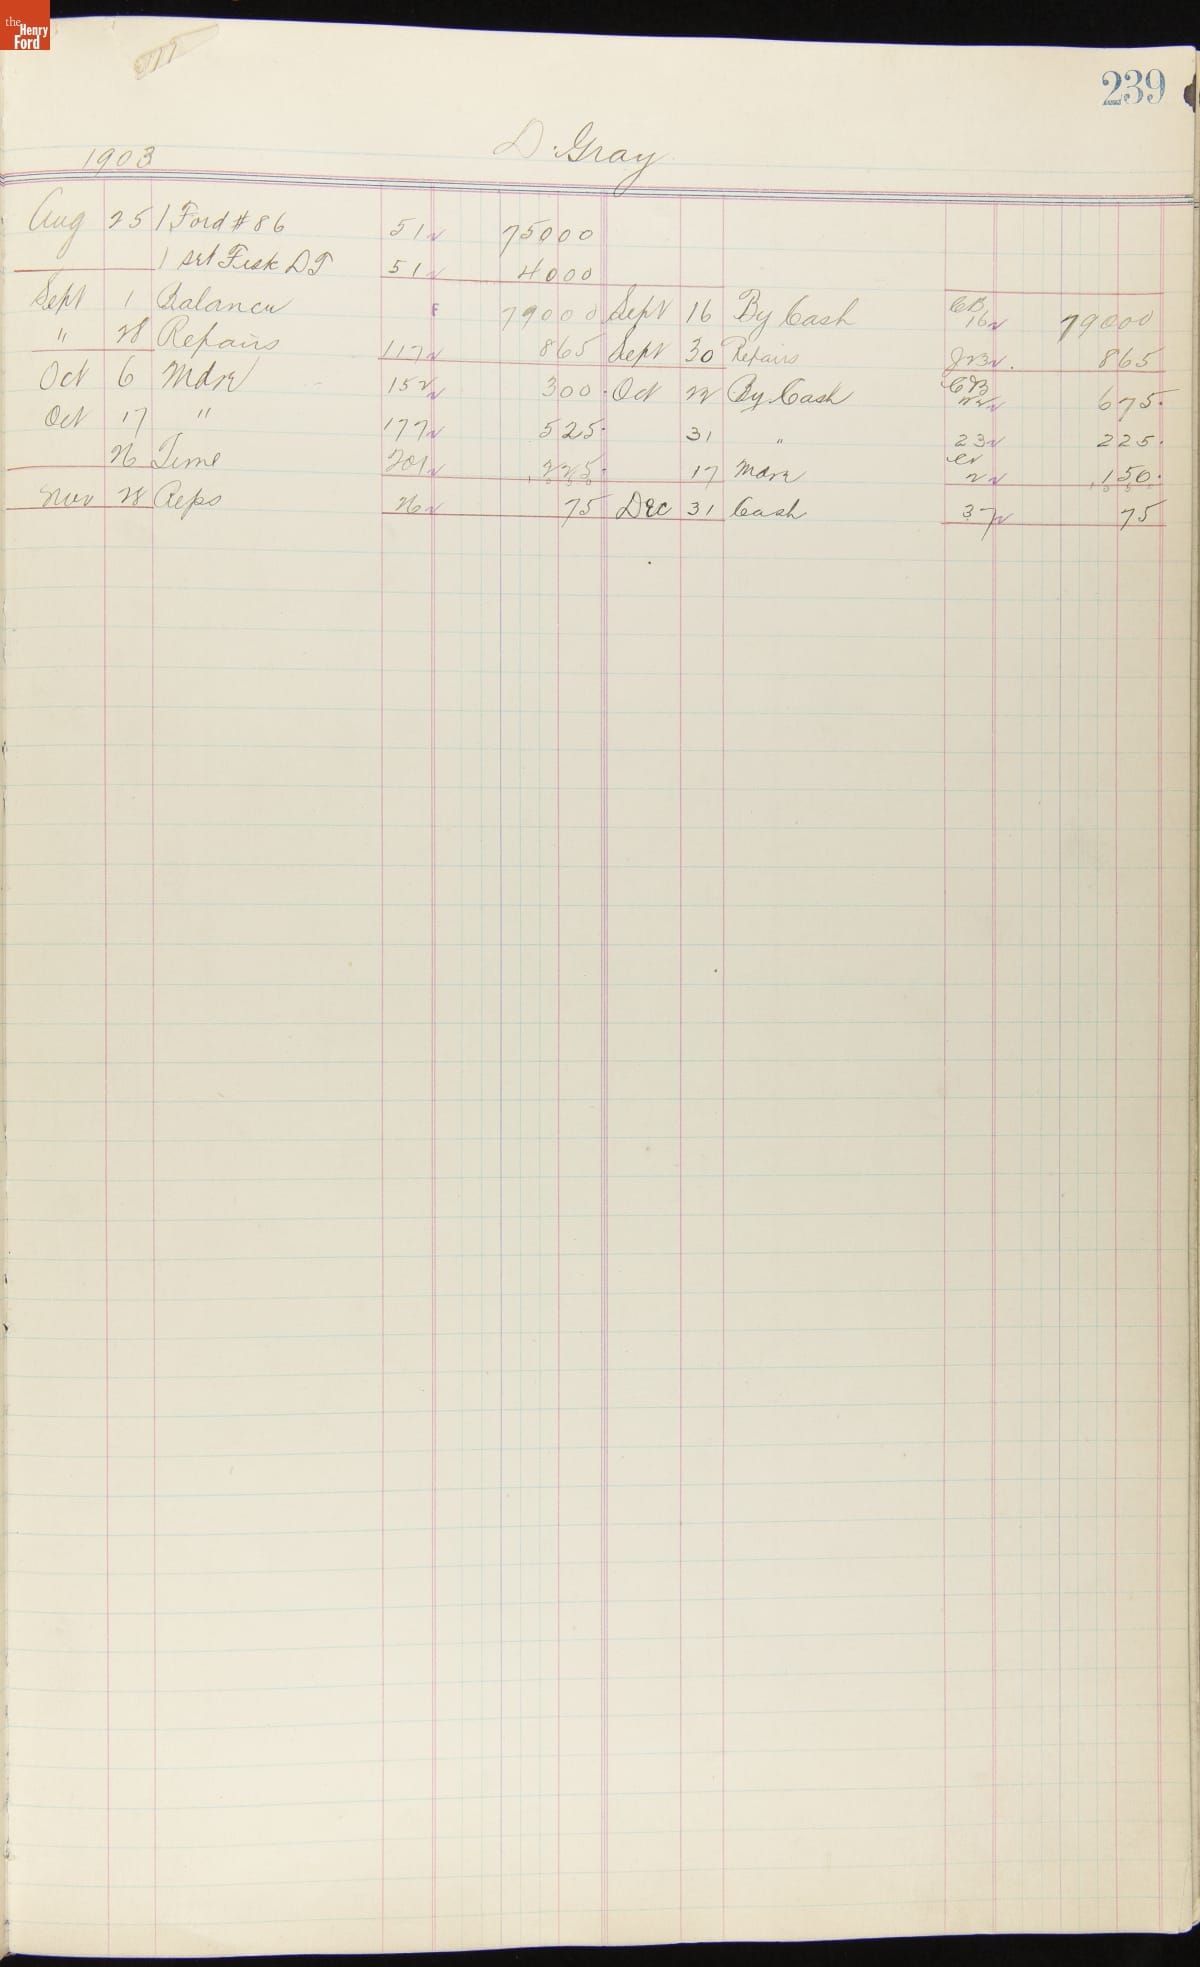 the Henry Ford
239
1903 D. Gray
Aug 25 1 Ford # 86 51 75000
1 set Fisk DT 51 4000
Sept 1 Balance F 79000 Sept 16 By Cash CB 16 79000
" 28 Repairs 117 865 Sept 30 Repairs J23 865
Oct 6 Mdse 152 300 Oct 22 By Cash CB 22 675
Oct 17 " 177 525 31 " 23 225
26 Time 201 225 17 Mdse Cr 2 150
1050 1050
Nov 28 Reps 26 75 Dec 31 Cash 37 75